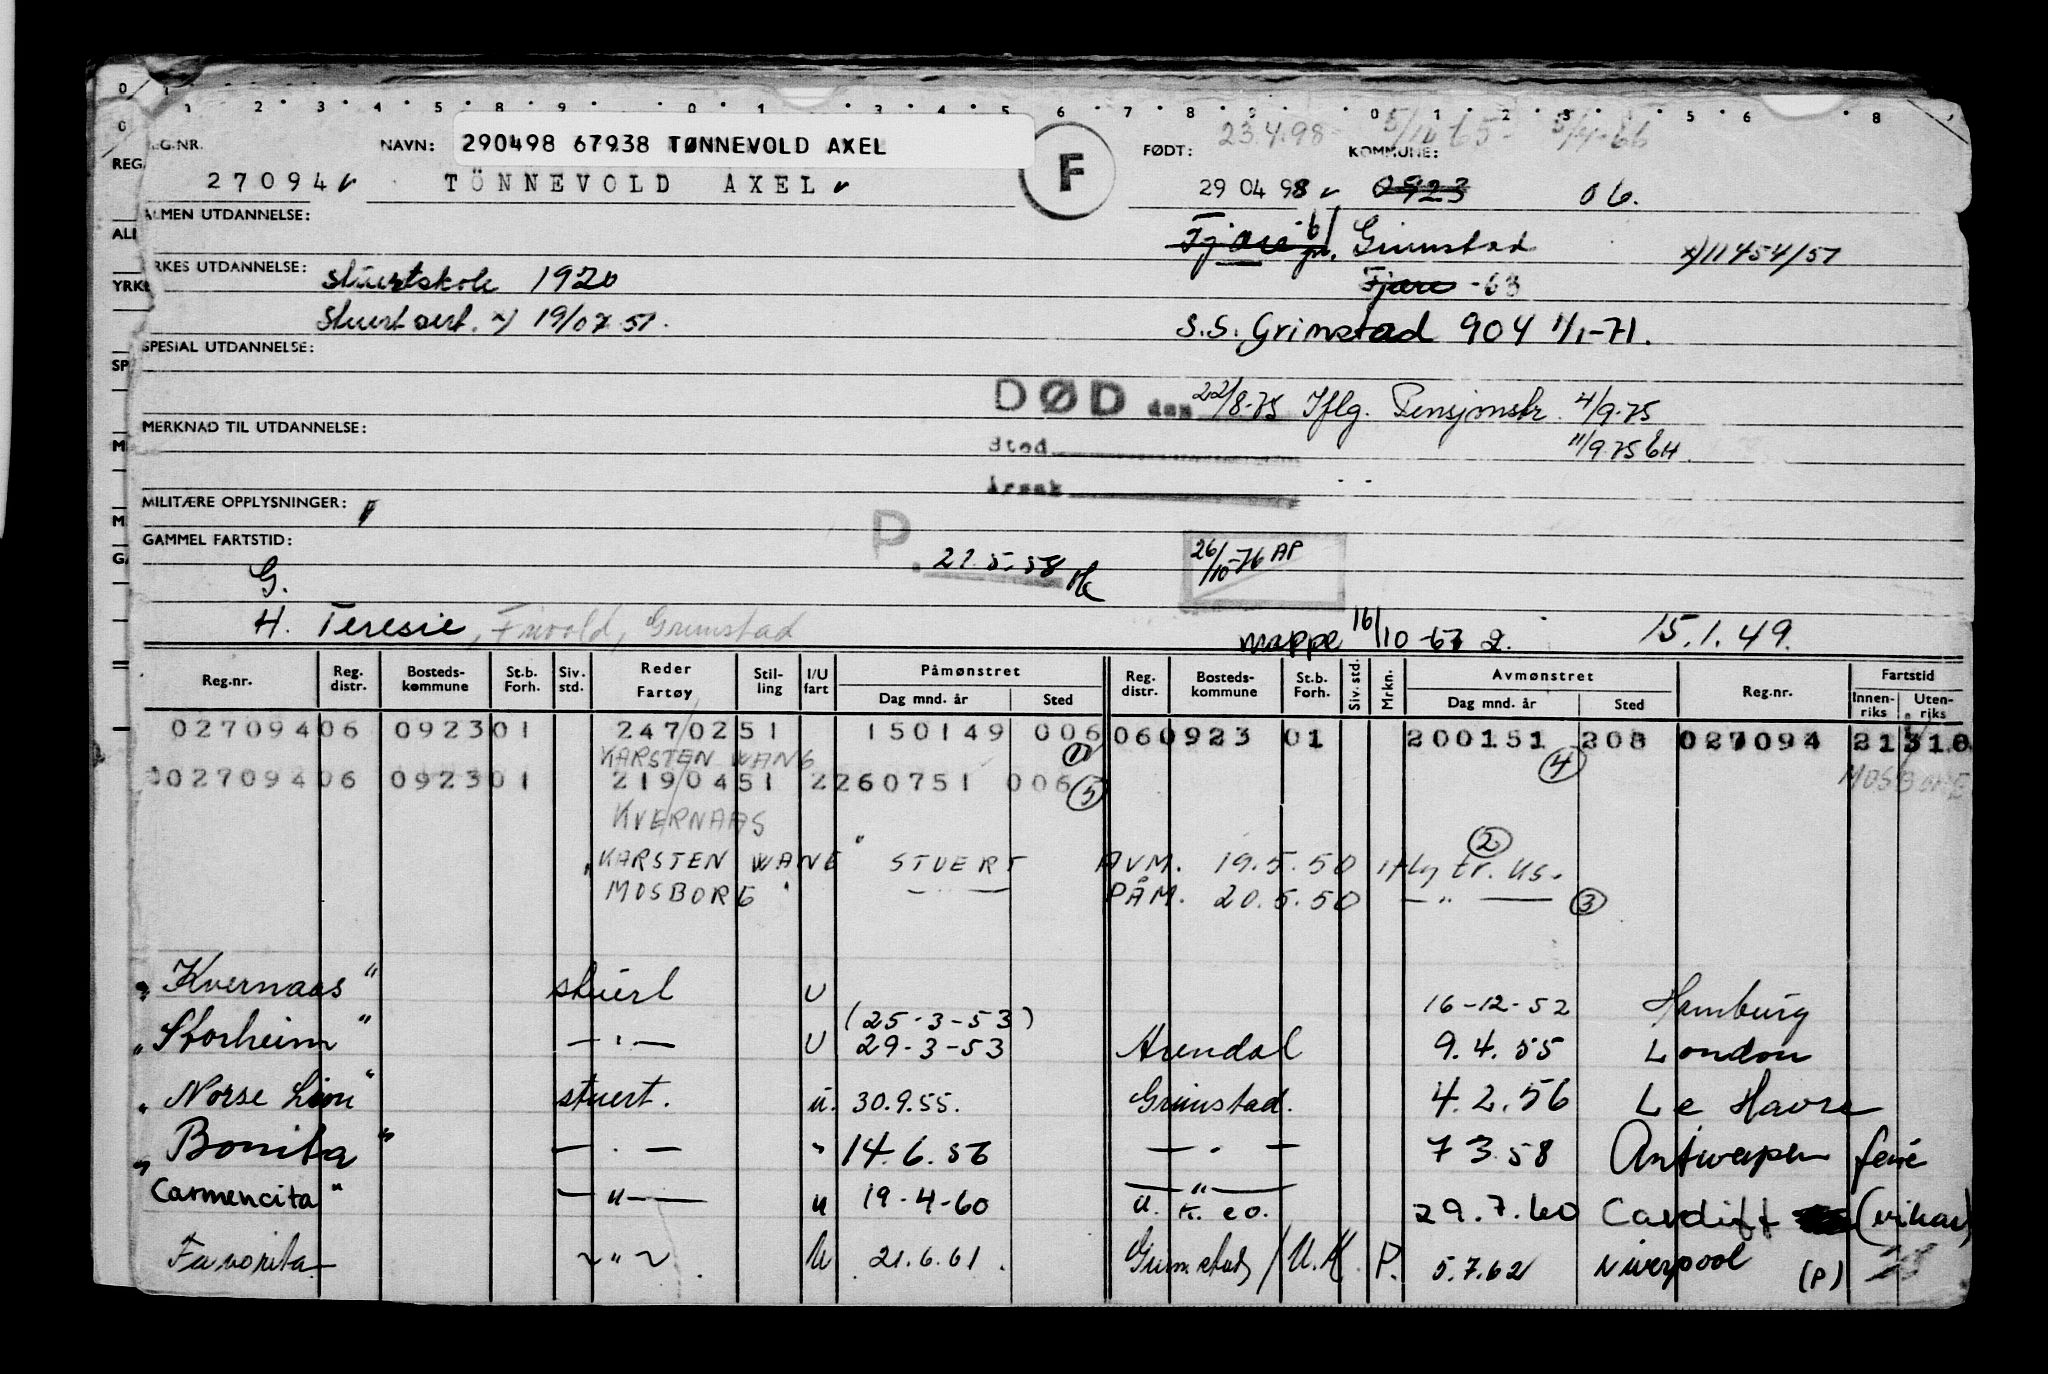 REG.NR. NAVN: 290498 67938 TØNNEVOLD AXEL F FØDT: 23.4.98 KOMMUNE: 5/10 65 - 5/4-66
27094 TÖNNEVOLD AXEL 29 04 98 0923 06.
ALMEN UTDANNELSE:
Fjære Grimstad x) 11454/51
YRKES UTDANNELSE: stuertskole 1920 Fjære -63
Stuert sert. x) 19/07 51. S.S. Grimstad 904 1/1-71.
SPESIAL UTDANNELSE:
DØD den 22/8-75 Iflg. Pensjonstr. 4/9-75
MERKNAD TIL UTDANNELSE:
Sted 11/9.75 EH.
Årsak
MILITÆRE OPPLYSNINGER:
GAMMEL FARTSTID: P. 26/10-76 AP
G. 27.5.58
H. Teresie, Frivold, Grimstad mappe 16/10-67 15.1.49.
Reg.nr. Reg. distr. Bosteds-kommune St.b. Forh. Siv. std. Reder Fartøy Stil-ling I/U fart Påmønstret Dag mnd. år Sted Reg. distr. Bosteds-kommune St.b. Forh. Siv. std. Mrkn. Avmønstret Dag mnd. år Sted Reg.nr. Fartstid Innen-riks Uten-riks
027094 06 0923 01 24702 51 150149 006 06 0923 01 200151 208 027094 21 318
KARSTEN WANG 1 4
027094 06 0923 01 21904 51 2 260751 006 5 MOSBORG
KVERNAAS
"KARSTEN WANG" STUERT AVM. 19.5.50 iflg tr. ks. 2
MOSBORG " — — PÅM. 20.5.50 — " — 3
"Kvernaas" stuert U 16-12-52 Hamburg
(25-3-53)
"Storheim" — " — U 29-3-53 Arendal 9.4.55 London
"Norse Lion" stuert. u. 30.9.55. Grimstad. 4.2.56 Le Havre
"Bonita" — . — " 14.6.56 — . — 7 3.58 Antwerpen ferie
Carmencita" — " — u 19-4-60 — " — U. K. eo. 29.7.60 Cardiff (vikar)
Favorita ~ " ~ U 21.6.61. Grimstad / U.K. P. 5.7.62 Liverpool (P)